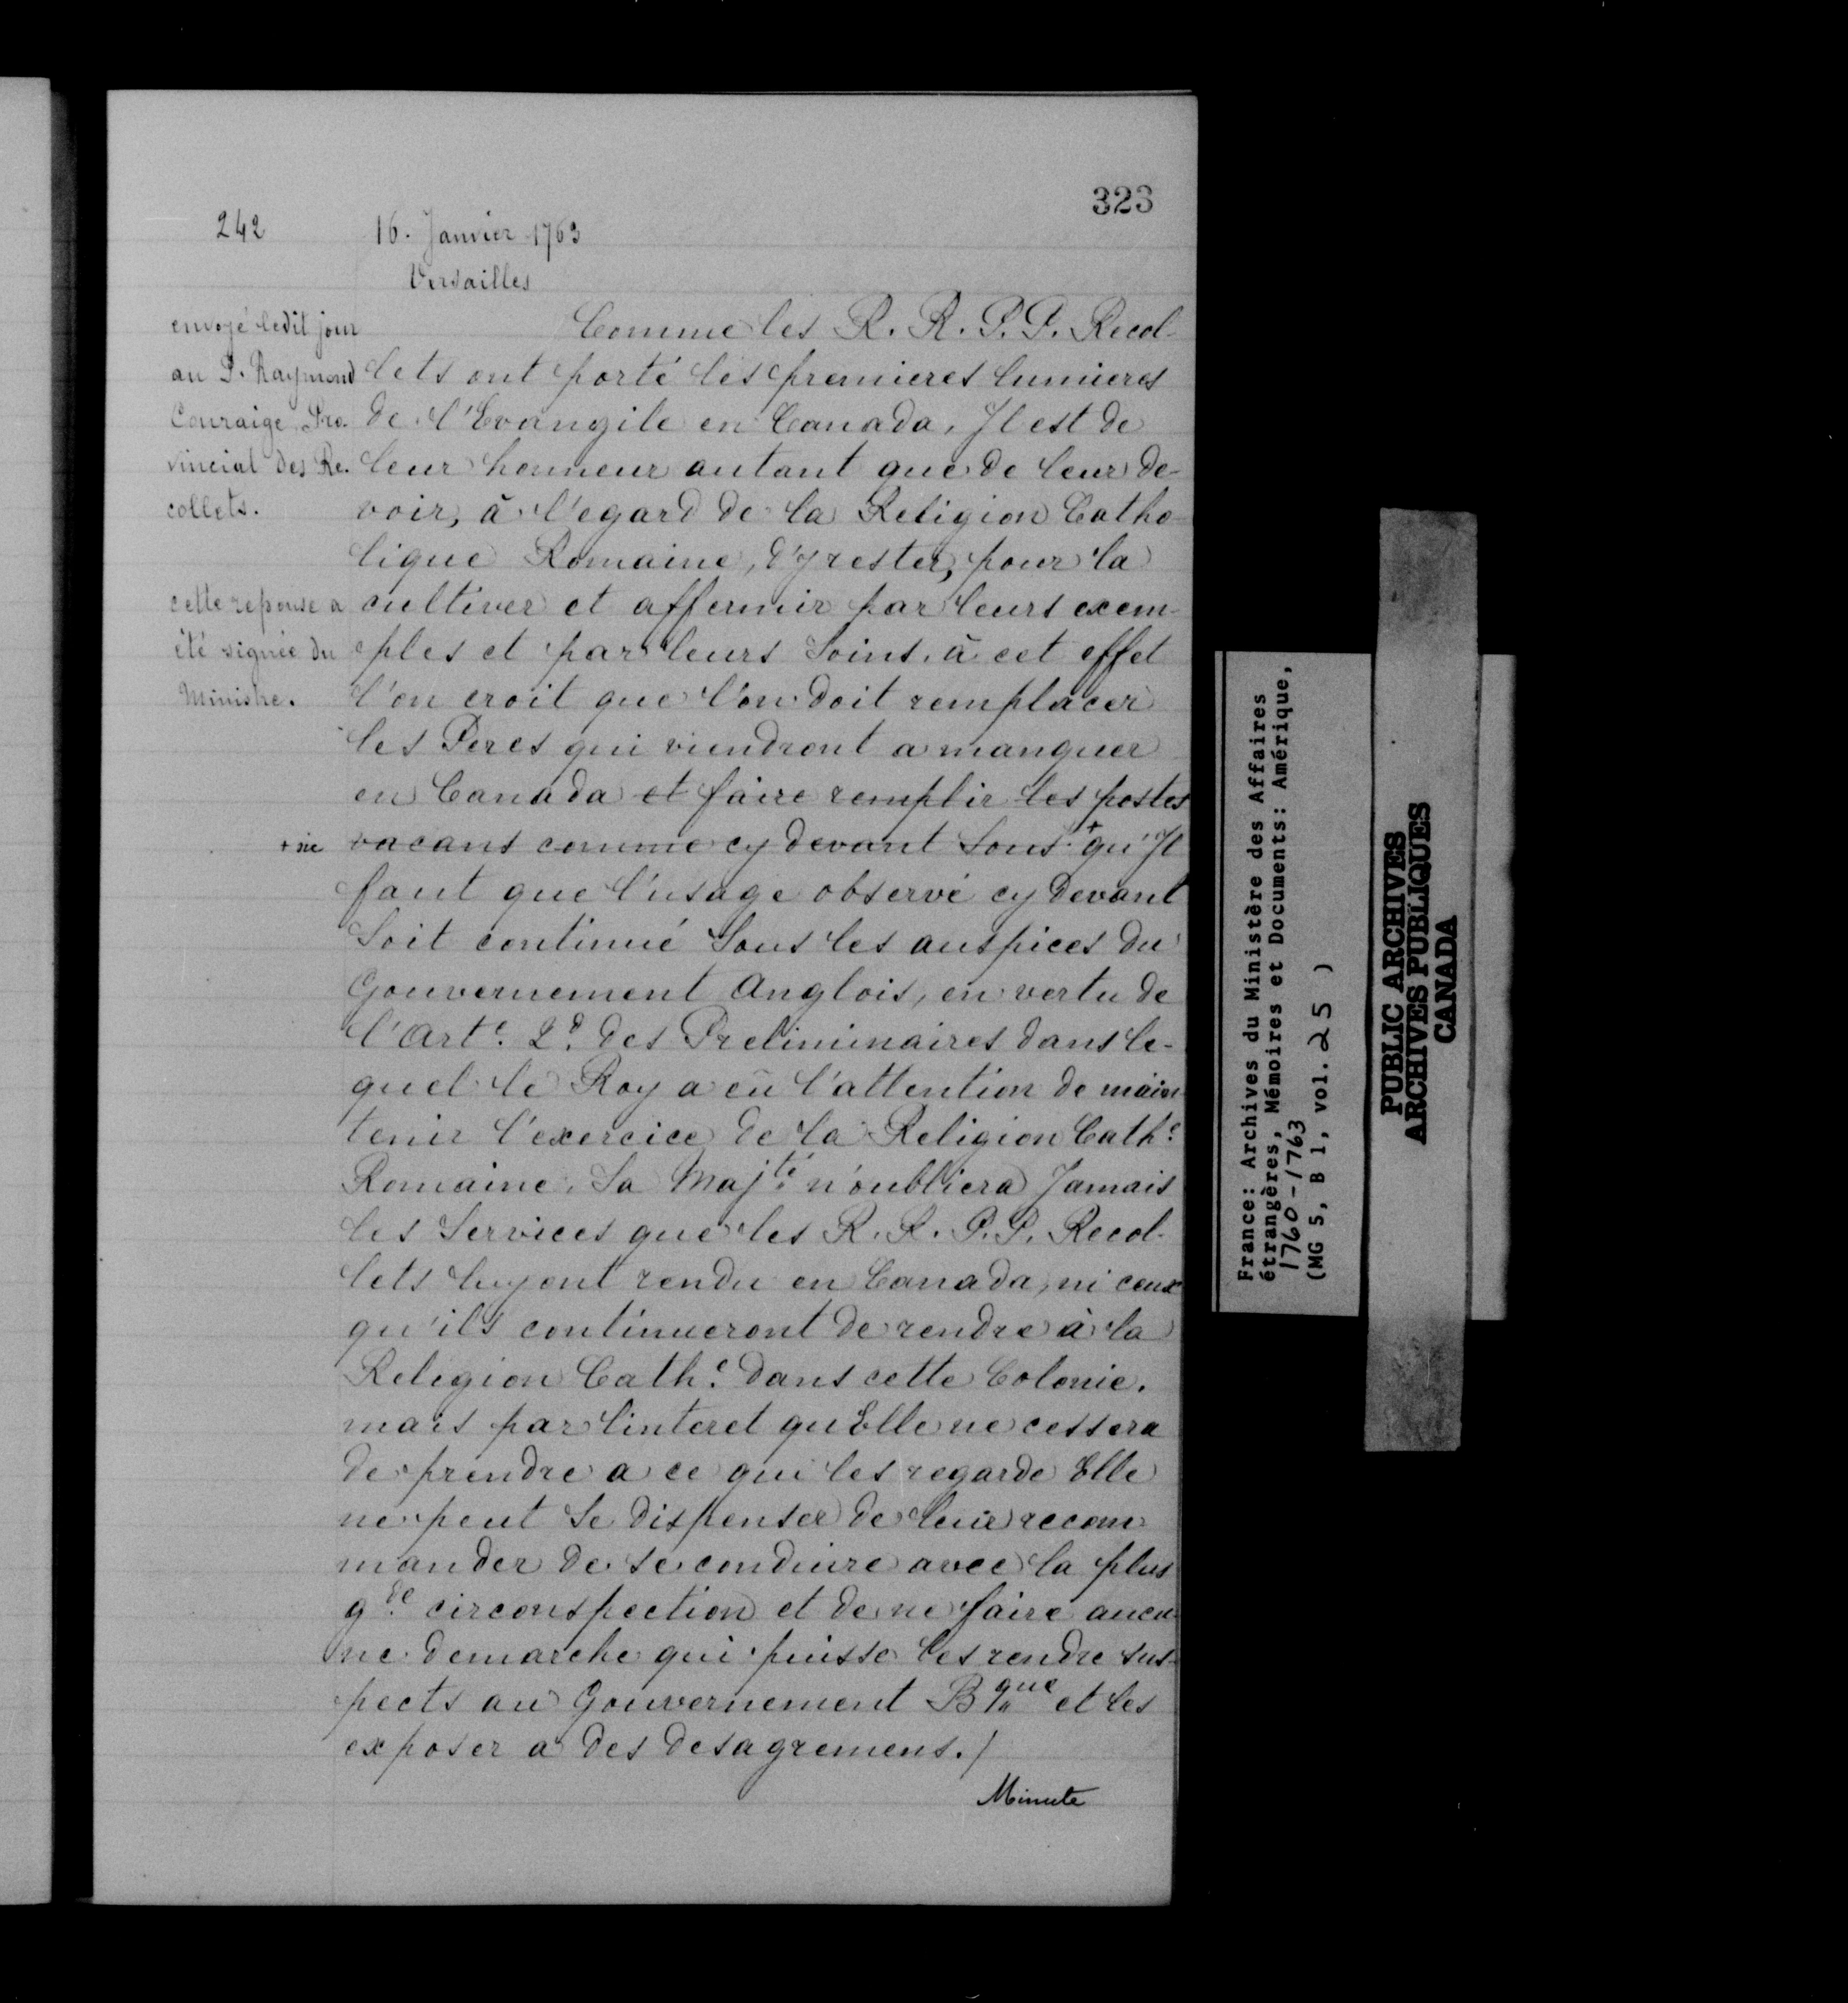 323
242
16. Janvier 1763
Versailles
envoyé ledit jour
au P. Raymond
Couraige Pro.
vincial des Re.
collets.
cette reponse a
été signée du
Ministre.
Comme les R. R. P. P. Recol-
lets ont porté les premieres lumieres
de l'Evangile en Canada, Il est de
leur honneur autant que de leur de-
voir, à l'egard de la Religion Catho-
lique Romaine, d'y rester, pour la
cultiver et affermir par leurs exem-
ples et par leurs Soins, à cet effet
l'on croit que l'on doit remplacer
les Peres qui viendront a manquer
en Canada et faire remplir les postes
+ sic
vacans comme cy devant Sous + qu'Il
faut que l'usage observé cy devant
Soit continué Sous les auspices du
Gouvernement Anglois, en vertu de
l'Arte. 2d. des Preliminaires dans le-
quel le Roy a eû l'attention de main-
tenir l'exercice de la Religion Cathe.
Romaine. Sa Majté. n'oubliera Jamais
les Services que les R. R. P. P. Recol-
lets luy ont rendu en Canada, ni ceux
qu'ils continueront de rendre à la
Religion Cathe. dans cette Colonie.
mais par linteret qu'Elle ne cessera
de prendre a ce qui les regarde Elle
ne peut Se dispenser de leur recom-
mander de se conduire avec la plus
gde. circonspection et de ne faire aucu-
ne demarche qui puisse les rendre sus-
pects au Gouvernement Bque et les
exposer a des desagremens./
Minute
France: Archives du Ministère des Affaires
étrangères, Mémoires et Documents: Amérique,
1760-1763
(MG 5, B 1, vol. 25 )
PUBLIC ARCHIVES
ARCHIVES PUBLIQUES
CANADA